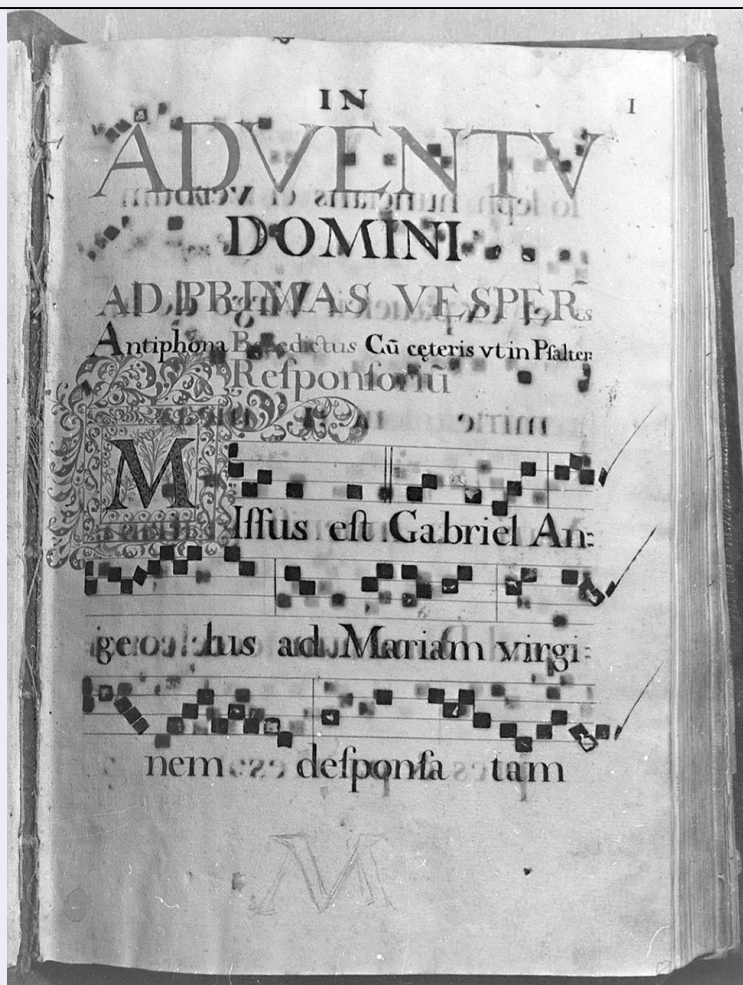 IN
I
ADVENTV
DOMINI
AD PRIMAS VESPER̃s
Antiphona Benedictus Cũ cęteris vt in Pſalter:
Reſponſoriũ
MIſſus eſt Gabriel An:
gelus ad Mariam virgi:
nem deſponſa tam
M